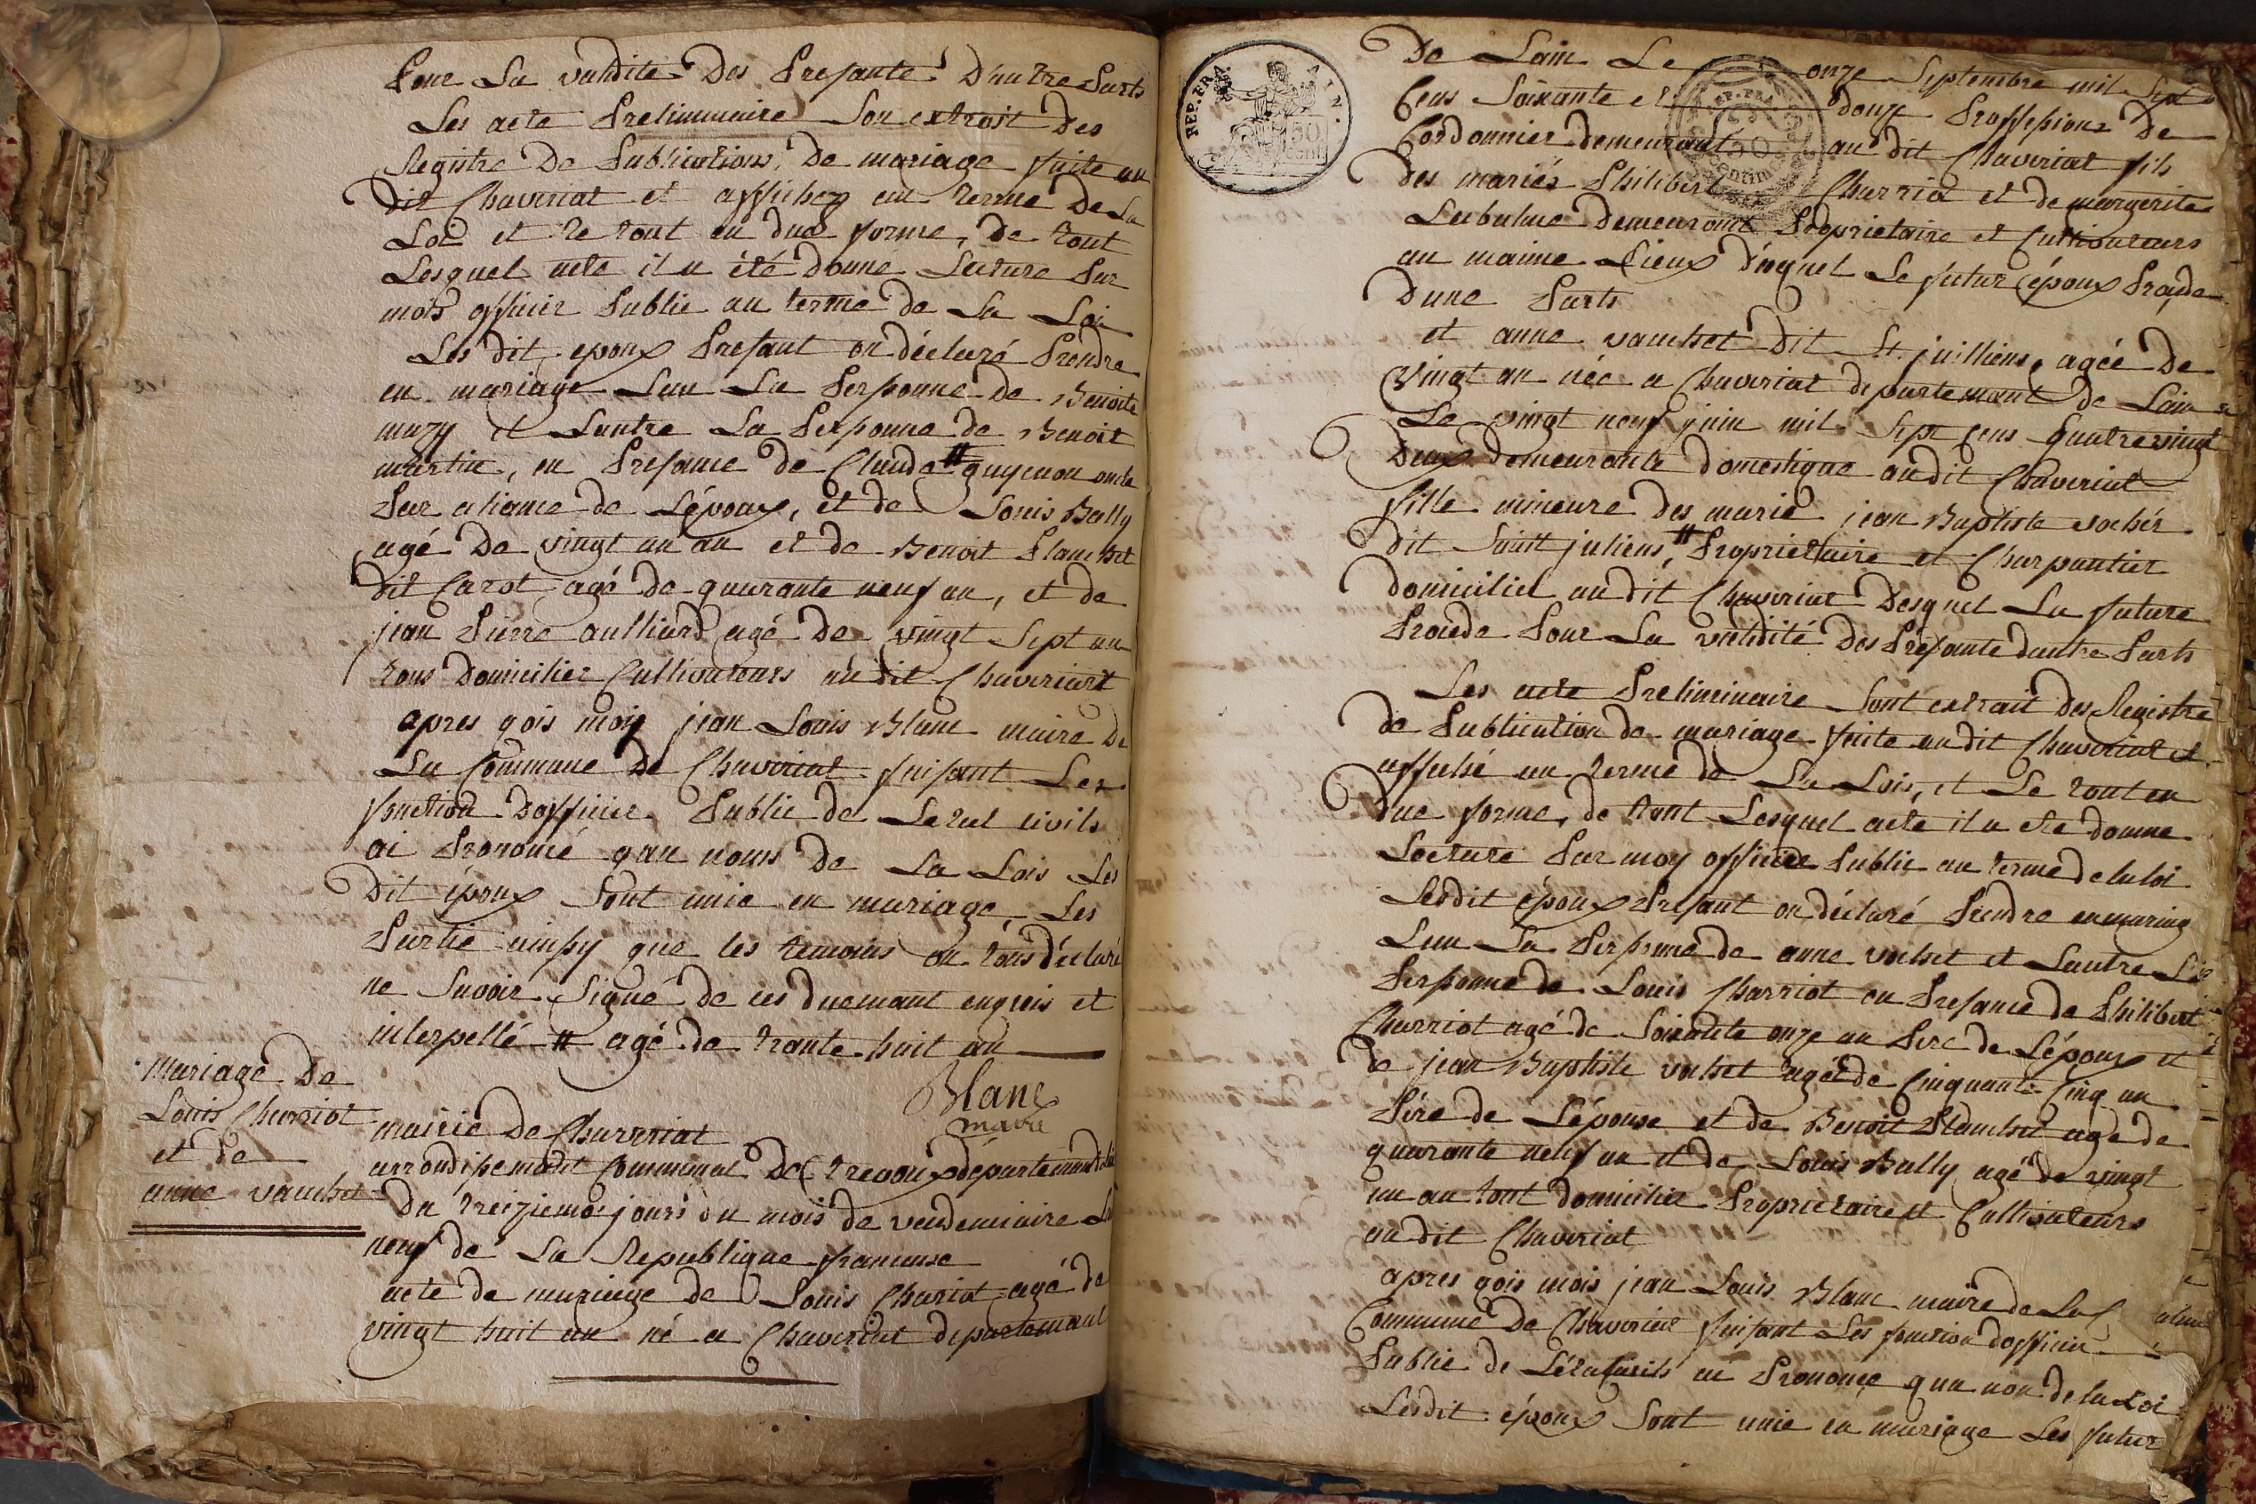 Pour La validite Des Presante D'autre Parts
Les acte Preliminaire Son extrait Des
Registre De Publications De mariage faite au
dit Chaveriat et affichez au terme De La
Loi et Le tout en due forme, De tout
Lesquel acte il a été donné Lecture Par
mois officier Public au terme de La Loi
Les dit epoux Presant on déclaré Prendre
en mariage Lun La Personne De Benoite
mazy et Lautre La Personne de Benoit
martin, en Presance de Claude # guyenon oncle
Par aliance de Lépoux, et de Louis Bally
agé De vingt un an et de Benoit Planchet
dit Carot agé de quarante neuf an, et de
jean Pierre aulliard agé De vingt Sept an
tous Domicilier Cultivateurs au dit Chaveriat
apres qois mois jean Louis Blanc maire De
La Commune de Chaveriat faisant Les
fonction Dofficier Public de Letat civils
ai Prononcé qau noms de La Lois Les
dit époux Sont unie en mariage Les
Partie ainsy que les temoins on tous déclaré
ne Savoir Signé de ces duemant enquis et
interpellé # agé de trante huit an
Blanc
maire
mariage De
Louis Charriot
et de
anne vauchet
mairie de Chaveriat
arrondisemant Communal De trevoux departemant
Du treiziemois jours du mois de vendemiaire
neuf de La Republique francaise
acte de mariage de Louis Chariot agé de
vingt huit an né a Chaveriat departemant
REP. FRA. AIN.
50
cent
REP. FRA.
50
centim
De Lain Le onze Septembre mil Sept
Cens Soixante et douze Proffession De
Cordonnier demeurant au dit Chaveriat fils
des mariés Philibert Charriot et de margerite
demeurant Proprietaire et Cultivateurs
au maime Lieux Desquel Le futur époux Procede
Dune Parts
et anne vauchet Dit St juilliens, agée De
vingt an née a Chaveriat departemant de Lain
Le vingt neuf juin mil Sept Cens quatrevingt
Deux demeurante domestique audit Chaveriat
fille mineure Des marié jean Baptiste vochér
dit Saint juliens # Proprietaire et Charpantier
domiciliet au dit Chaveriat Desquel La future
Procede Pour La validité Des Presante dautre Parts
Les acte Preliminaire Sont extrait Des Registre
de Publication de mariage faite au dit Chaveriat et
affiché au terme de La Lois, et Le tout en
due forme, de tout Lesquel acte il a ete donne
Lecture Par moy officier Public au terme de la loi
Lesdit époux Presant on déclaré Prendre en mariag
Lun La Personne de anne vochet et Lautre La
Personne de Louis Charriot en Presance de Philibert
Charriot agé de Soixante onze an Pere de Lépoux et
de jean Baptiste vochet agé de Cinquante Cinq an
Père de Lépouse et de Benoit Planchet age de
quarante neuf an et de Louis Bally agé de vingt
un an tout domicilier Proprietaire et Cultivateurs
au dit Chaveriat
apres qois mois jean Louis Blanc maire de La
Commune De Chaveriat faisant Les fonction dofficier
Public de Létat civils ai Prononcé qau non de la Loi
Lesdit époux Sont unie en mariage Les futur